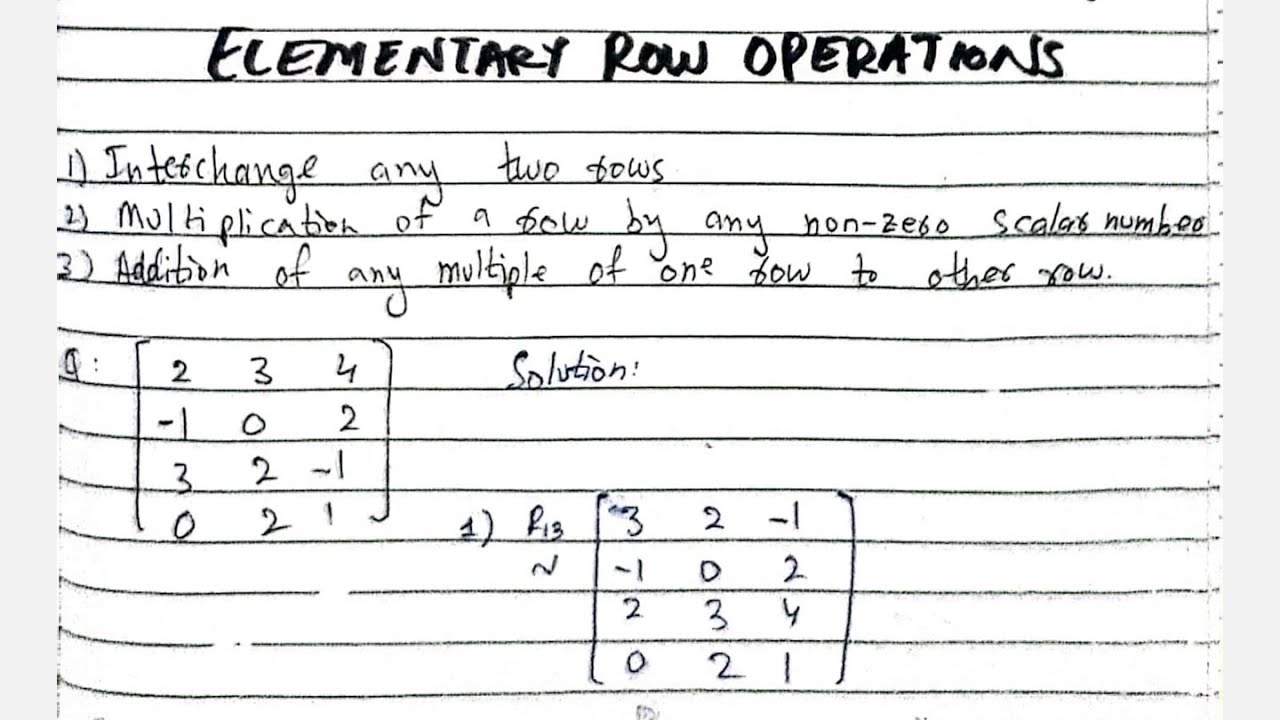 ELEMENTARY ROW OPERATIONS
1) Interchange any two rows
2) Multiplication of a row by any non-zero scalar number
3) Addition of any multiple of one row to other row.
Q: Solution:
2 3 4
-1 0 2
3 2 -1
0 2 1
1) R13 3 2 -1
~ -1 0 2
2 3 4
0 2 1